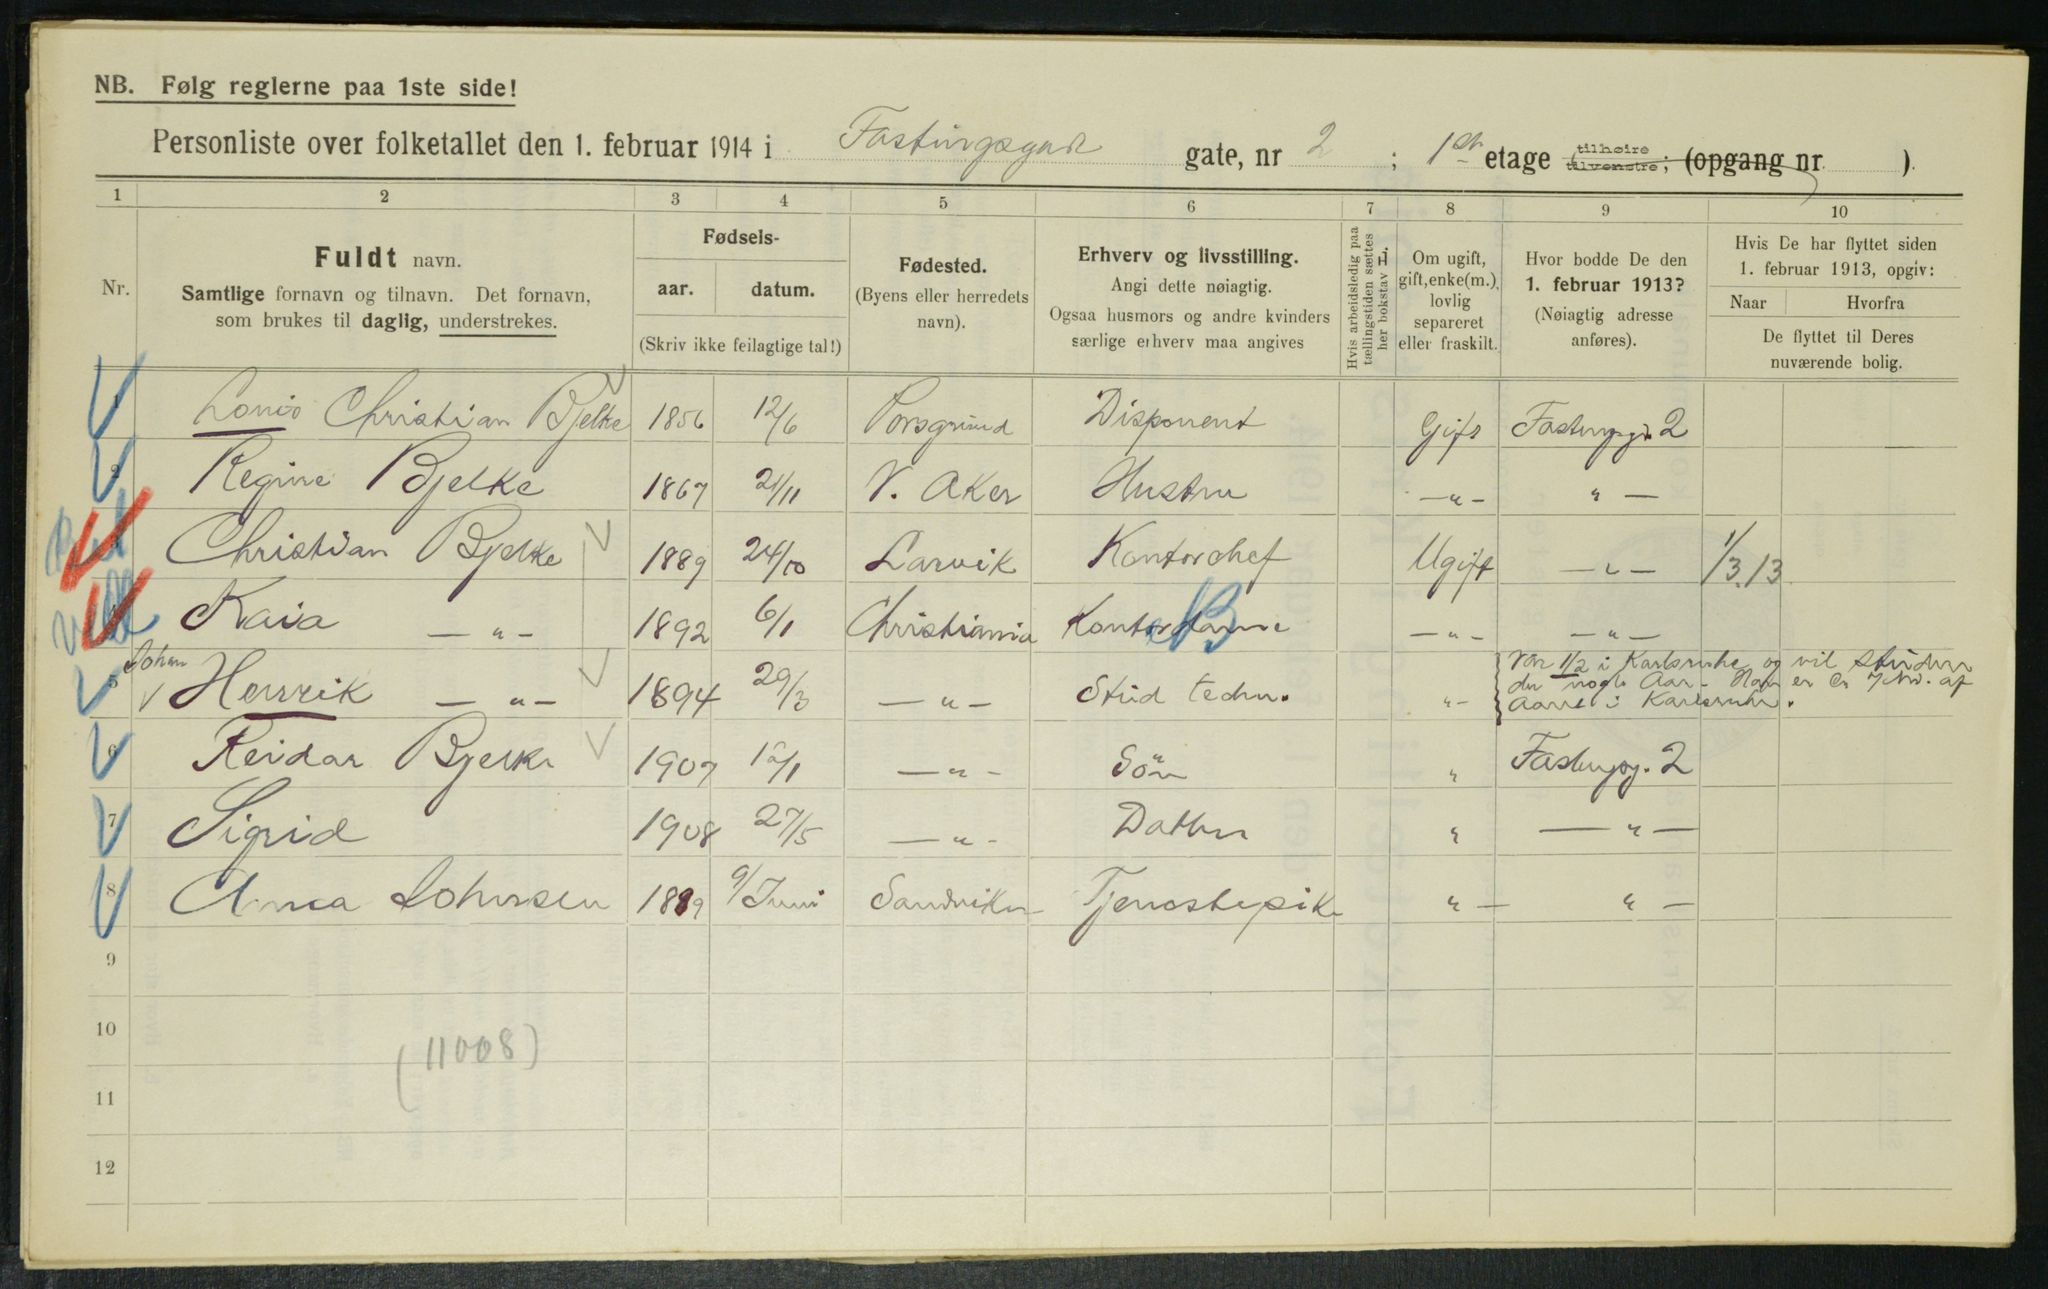 NB. Følg reglerne paa 1ste side!
Personliste over folketallet den 1. februar 1914 i Fastingsgade gate, nr 2 ; 1st etage (tilhøire tilvenstre; (opgang nr ).
1 2 3 4 5 6 7 8 9 10
Nr.
Fuldt navn.
Samtlige fornavn og tilnavn. Det fornavn,
som brukes til daglig, understrekes.
Fødsels-
aar. datum.
(Skriv ikke feilagtige tal!)
Fødested.
(Byens eller herredets
navn).
Erhverv og livsstilling.
Angi dette nøiagtig.
Ogsaa husmors og andre kvinders
særlige erhverv maa angives
Hvis arbeidsledig paa
tællingstiden sættes
her bokstav L.
Om ugift,
gift, enke(m.),
lovlig
separeret
eller fraskilt.
Hvor bodde De den
1. februar 1913?
(Nøiagtig adresse
anføres).
Hvis De har flyttet siden
1. februar 1913, opgiv:
Naar Hvorfra
De flyttet til Deres
nuværende bolig.
1 Louis Christian Bjelke 1856 12/6 Porsgrund Disponent Gift Fastingsg. 2
2 Regine Bjelke 1867 21/11 V. Aker Hustru —"— " —
3 Christian Bjelke 1889 24/10 Larvik Kontorchef Ugift —"— 1/3.13
4 Kaia —"— 1892 6/1 Christiania Kontordame —"— —"—
B
Johan
5 Henrik —"— 1894 29/3 —"— Stud techn. "— Var 1/2 i Karlsruhe og vil studere
der nogle Aar - Han er Md. af
Aaret i Karlsruhe.
6 Reidar Bjelke 1907 —"— Søn " Fastingsg. 2
7 Sigrid 1908 27/5 —"— Datter " —"—
8 Anna Johnsen 1889 9/Juni Sandviken Tjenestepike "— "—
9
10
(11008)
11
12